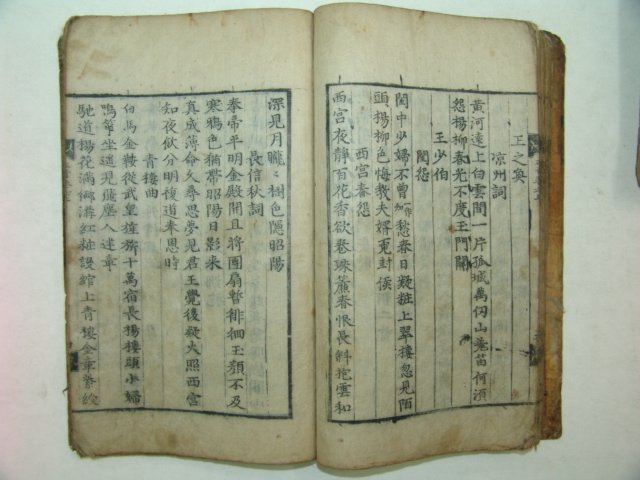 王之奐
凉州詞
黃河遠上白雲間一片孤城萬仞山羌笛何須
怨楊柳春光不度玉門關
王少伯
閨怨
閨中少婦不曾愁春日凝粧上翠樓忽見陌
頭楊柳色悔教夫婿覓封侯
西宮春怨
西宮夜靜百花香欲捲珠簾春恨長斜抱雲和
深見月朧〻樹色隱昭陽
長信秋詞
奉帚平明金殿開且將團扇暫徘徊玉顏不及
寒鴉色猶帶昭陽日影來
真成薄命久尋思夢見君王覺後疑火照西宮
知夜飮分明複道奉恩時
青樓曲
白馬金鞍從武皇旌旂十萬宿長楊樓頭少婦
鳴箏坐遙見飛塵入建章
馳道楊花滿御溝紅粧謾綰上青樓金章紫綬